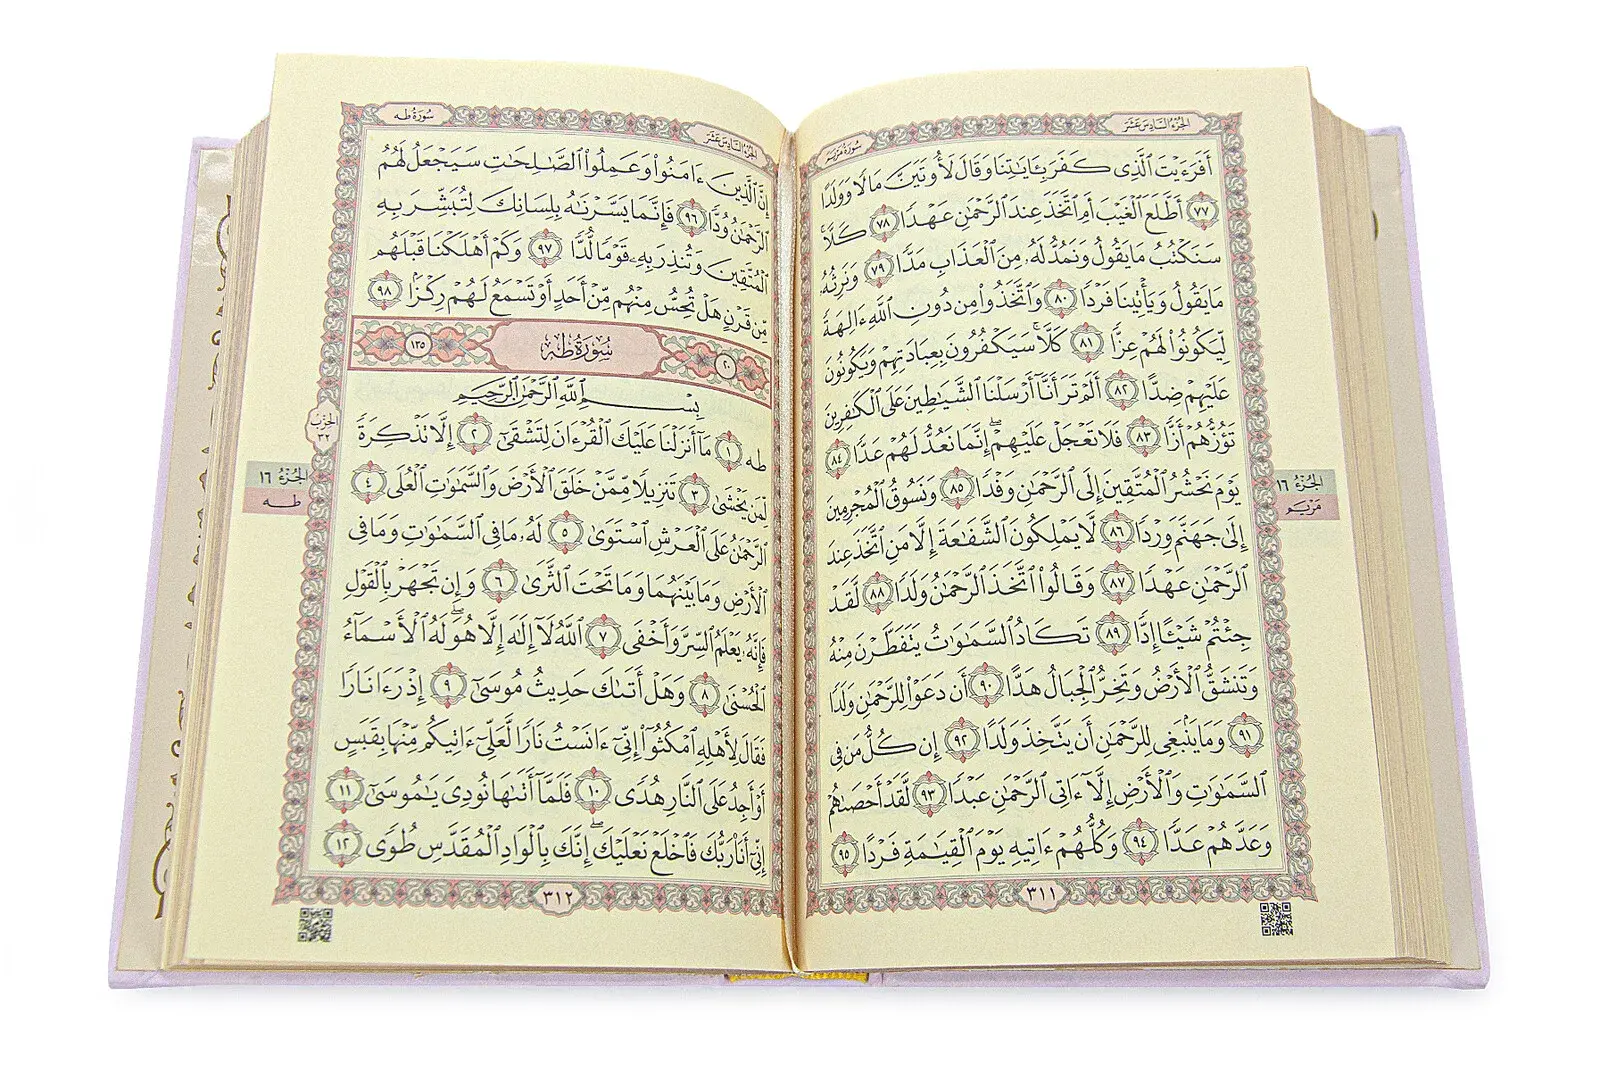 الجزء السادس عشر
سورة مريم
أَفَرَءَيْتَ ٱلَّذِى كَفَرَ بِـَٔايَـٰتِنَا وَقَالَ لَأُوتَيَنَّ مَالًا وَوَلَدًا
﴿٧٧﴾ أَطَّلَعَ ٱلْغَيْبَ أَمِ ٱتَّخَذَ عِندَ ٱلرَّحْمَـٰنِ عَهْدًا ﴿٧٨﴾ كَلَّا ۚ
سَنَكْتُبُ مَا يَقُولُ وَنَمُدُّ لَهُۥ مِنَ ٱلْعَذَابِ مَدًّا ﴿٧٩﴾ وَنَرِثُهُۥ
مَا يَقُولُ وَيَأْتِينَا فَرْدًا ﴿٨٠﴾ وَٱتَّخَذُوا۟ مِن دُونِ ٱللَّهِ ءَالِهَةً
لِّيَكُونُوا۟ لَهُمْ عِزًّا ﴿٨١﴾ كَلَّا ۚ سَيَكْفُرُونَ بِعِبَادَتِهِمْ وَيَكُونُونَ
عَلَيْهِمْ ضِدًّا ﴿٨٢﴾ أَلَمْ تَرَ أَنَّآ أَرْسَلْنَا ٱلشَّيَـٰطِينَ عَلَى ٱلْكَـٰفِرِينَ
تَؤُزُّهُمْ أَزًّا ﴿٨٣﴾ فَلَا تَعْجَلْ عَلَيْهِمْ ۖ إِنَّمَا نَعُدُّ لَهُمْ عَدًّا ﴿٨٤﴾
يَوْمَ نَحْشُرُ ٱلْمُتَّقِينَ إِلَى ٱلرَّحْمَـٰنِ وَفْدًا ﴿٨٥﴾ وَنَسُوقُ ٱلْمُجْرِمِينَ
إِلَىٰ جَهَنَّمَ وِرْدًا ﴿٨٦﴾ لَّا يَمْلِكُونَ ٱلشَّفَـٰعَةَ إِلَّا مَنِ ٱتَّخَذَ عِندَ
ٱلرَّحْمَـٰنِ عَهْدًا ﴿٨٧﴾ وَقَالُوا۟ ٱتَّخَذَ ٱلرَّحْمَـٰنُ وَلَدًا ﴿٨٨﴾ لَّقَدْ
جِئْتُمْ شَيْـًٔا إِدًّا ﴿٨٩﴾ تَكَادُ ٱلسَّمَـٰوَٰتُ يَتَفَطَّرْنَ مِنْهُ
وَتَنشَقُّ ٱلْأَرْضُ وَتَخِرُّ ٱلْجِبَالُ هَدًّا ﴿٩٠﴾ أَن دَعَوْا۟ لِلرَّحْمَـٰنِ وَلَدًا
﴿٩١﴾ وَمَا يَنۢبَغِى لِلرَّحْمَـٰنِ أَن يَتَّخِذَ وَلَدًا ﴿٩٢﴾ إِن كُلُّ مَن فِى
ٱلسَّمَـٰوَٰتِ وَٱلْأَرْضِ إِلَّآ ءَاتِى ٱلرَّحْمَـٰنِ عَبْدًا ﴿٩٣﴾ لَّقَدْ أَحْصَىٰهُمْ
وَعَدَّهُمْ عَدًّا ﴿٩٤﴾ وَكُلُّهُمْ ءَاتِيهِ يَوْمَ ٱلْقِيَـٰمَةِ فَرْدًا ﴿٩٥﴾
٣١١
الجزء ١٦
مريم
الجزء السادس عشر
سورة طه
إِنَّ ٱلَّذِينَ ءَامَنُوا۟ وَعَمِلُوا۟ ٱلصَّـٰلِحَـٰتِ سَيَجْعَلُ لَهُمُ
ٱلرَّحْمَـٰنُ وُدًّا ﴿٩٦﴾ فَإِنَّمَا يَسَّرْنَـٰهُ بِلِسَانِكَ لِتُبَشِّرَ بِهِ
ٱلْمُتَّقِينَ وَتُنذِرَ بِهِۦ قَوْمًا لُّدًّا ﴿٩٧﴾ وَكَمْ أَهْلَكْنَا قَبْلَهُم
مِّن قَرْنٍ هَلْ تُحِسُّ مِنْهُم مِّنْ أَحَدٍ أَوْ تَسْمَعُ لَهُمْ رِكْزًۢا ﴿٩٨﴾
٢٠ سُورَةُ طه ١٣٥
بِسْمِ ٱللَّهِ ٱلرَّحْمَـٰنِ ٱلرَّحِيمِ
طه ﴿١﴾ مَآ أَنزَلْنَا عَلَيْكَ ٱلْقُرْءَانَ لِتَشْقَىٰٓ ﴿٢﴾ إِلَّا تَذْكِرَةً
لِّمَن يَخْشَىٰ ﴿٣﴾ تَنزِيلًا مِّمَّنْ خَلَقَ ٱلْأَرْضَ وَٱلسَّمَـٰوَٰتِ ٱلْعُلَى ﴿٤﴾
ٱلرَّحْمَـٰنُ عَلَى ٱلْعَرْشِ ٱسْتَوَىٰ ﴿٥﴾ لَهُۥ مَا فِى ٱلسَّمَـٰوَٰتِ وَمَا فِى
ٱلْأَرْضِ وَمَا بَيْنَهُمَا وَمَا تَحْتَ ٱلثَّرَىٰ ﴿٦﴾ وَإِن تَجْهَرْ بِٱلْقَوْلِ
فَإِنَّهُۥ يَعْلَمُ ٱلسِّرَّ وَأَخْفَى ﴿٧﴾ ٱللَّهُ لَآ إِلَـٰهَ إِلَّا هُوَ ۖ لَهُ ٱلْأَسْمَآءُ
ٱلْحُسْنَىٰ ﴿٨﴾ وَهَلْ أَتَىٰكَ حَدِيثُ مُوسَىٰٓ ﴿٩﴾ إِذْ رَءَا نَارًا
فَقَالَ لِأَهْلِهِ ٱمْكُثُوٓا۟ إِنِّىٓ ءَانَسْتُ نَارًا لَّعَلِّىٓ ءَاتِيكُم مِّنْهَا بِقَبَسٍ
أَوْ أَجِدُ عَلَى ٱلنَّارِ هُدًى ﴿١٠﴾ فَلَمَّآ أَتَىٰهَا نُودِىَ يَـٰمُوسَىٰٓ ﴿١١﴾
إِنِّىٓ أَنَا۠ رَبُّكَ فَٱخْلَعْ نَعْلَيْكَ ۖ إِنَّكَ بِٱلْوَادِ ٱلْمُقَدَّسِ طُوًى ﴿١٢﴾
٣١٢
الحزب
٣٢
الجزء ١٦
طه